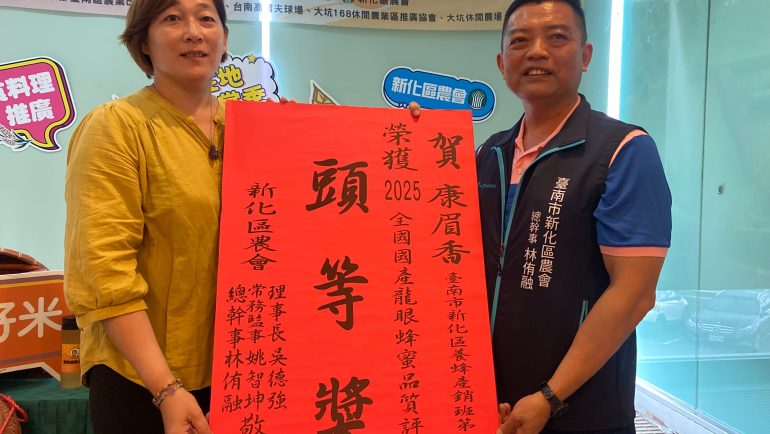 新化區農會
台南高爾夫球場、大坑168休閒農業區推廣協會、大坑休閒農場
料理
推廣
在地
新化區農會
賀康眉香
臺南市新化區養蜂產銷班第
榮獲2025全國國產龍眼蜂蜜品質評
頭等獎
新化區農會
理事長吳德強
常務監事姚智坤
總幹事林侑融
敬
臺南市新化區農會
總幹事 林侑融
好米